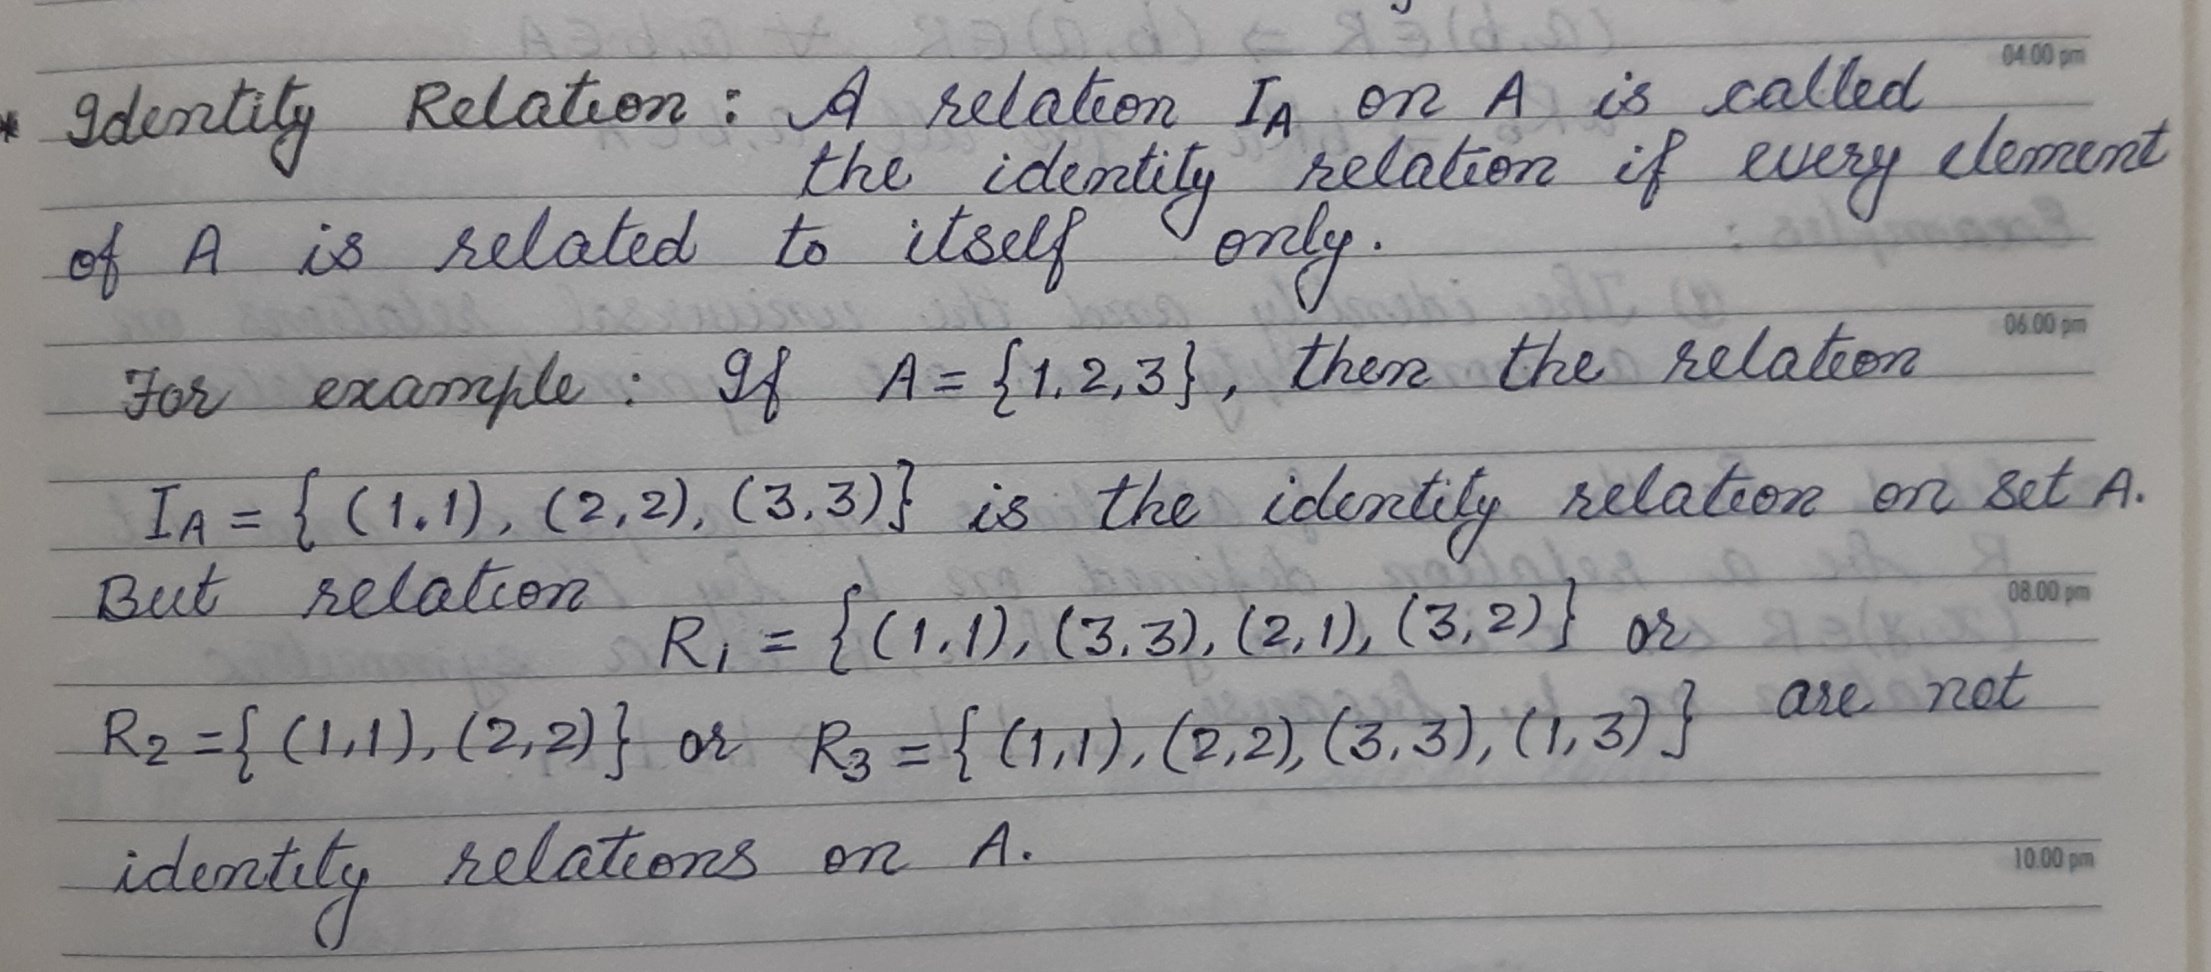 04.00 pm
* Identity Relation : A relation I_A on A is called
the identity relation if every element
of A is related to itself only.
06.00 pm
For example : If A = {1, 2, 3}, then the relation
I_A = { (1, 1), (2, 2), (3, 3)} is the identity relation on set A.
But relation
08.00 pm
R₁ = {(1, 1), (3, 3), (2, 1), (3, 2)} or
R₂ = { (1, 1), (2, 2)} or R₃ = { (1, 1), (2, 2), (3, 3), (1, 3)} are not
identity relations on A.
10.00 pm